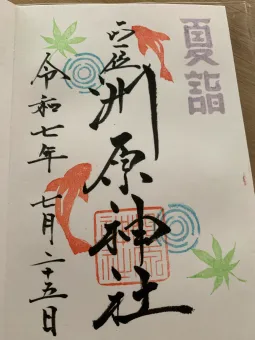 夏詣
洲原神社
令和七年 七月二十五日